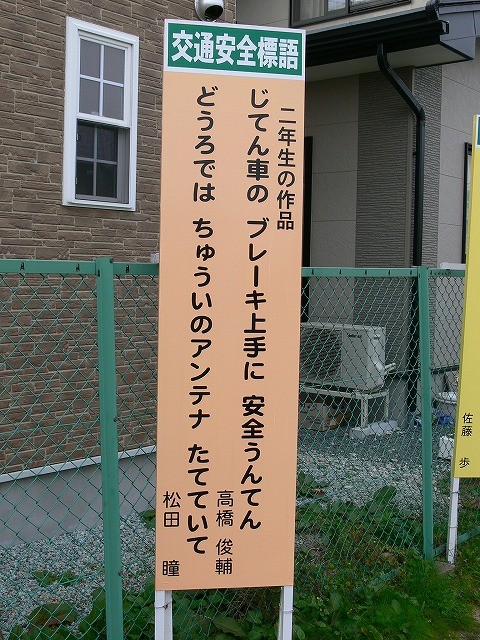 交通安全標語
二年生の作品
じてん車の ブレーキ上手に 安全うんてん
高橋 俊輔
どうろでは ちゅういのアンテナ たてていて
松田 瞳
佐藤 歩